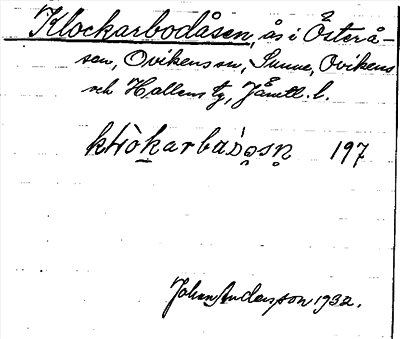 Klockarbodåsen, ås i Österå-
sen, Ovikens sn, Sunne, Ovikens
och Hallens tg, Jämtl. l.
197
Johan Andersson 1932.